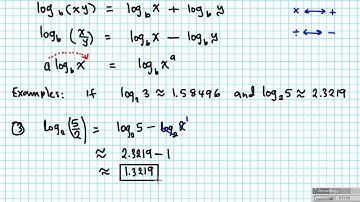 log_b(xy) = log_b x + log_b y
x ⟷ +
log_b(x/y) = log_b x − log_b y
÷ ⟷ −
a log_b x = log_b x^a
Examples: If log_2 3 ≈ 1.58496 and log_2 5 ≈ 2.3219
③ log_2(5/2) = log_2 5 − log_2 2^1
≈ 2.3219 − 1
≈ 1.3219